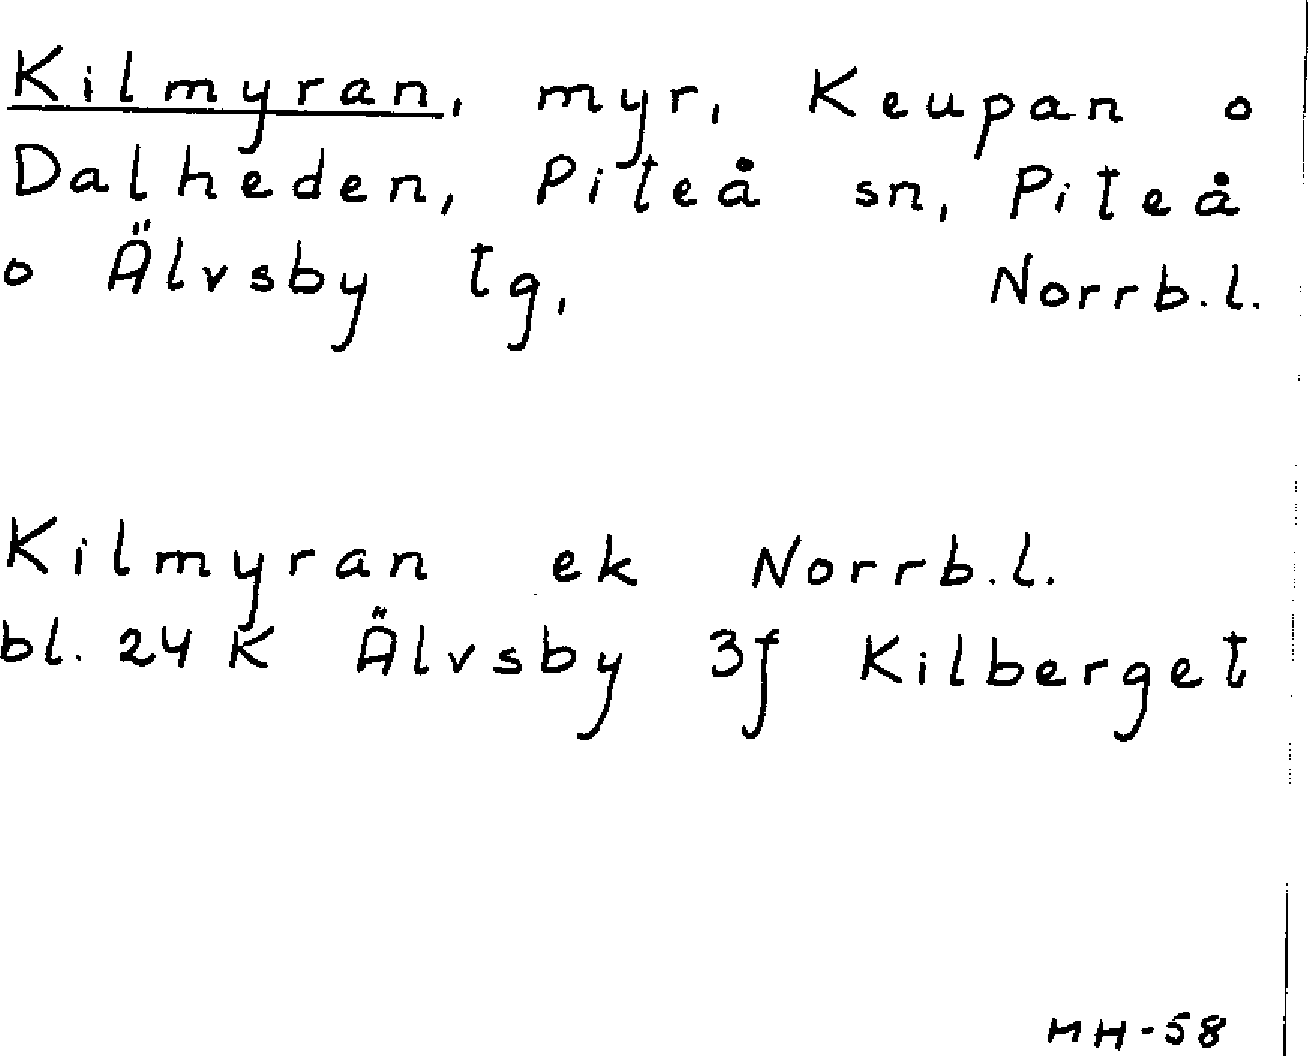 Kilmyran, myr, Keupan o
Dalheden, Piteå sn, Piteå
o Älvsby tg, Norrb.l.
Kilmyran ek Norrb.l.
bl. 24 K Älvsby 3f Kilberget
MH-58